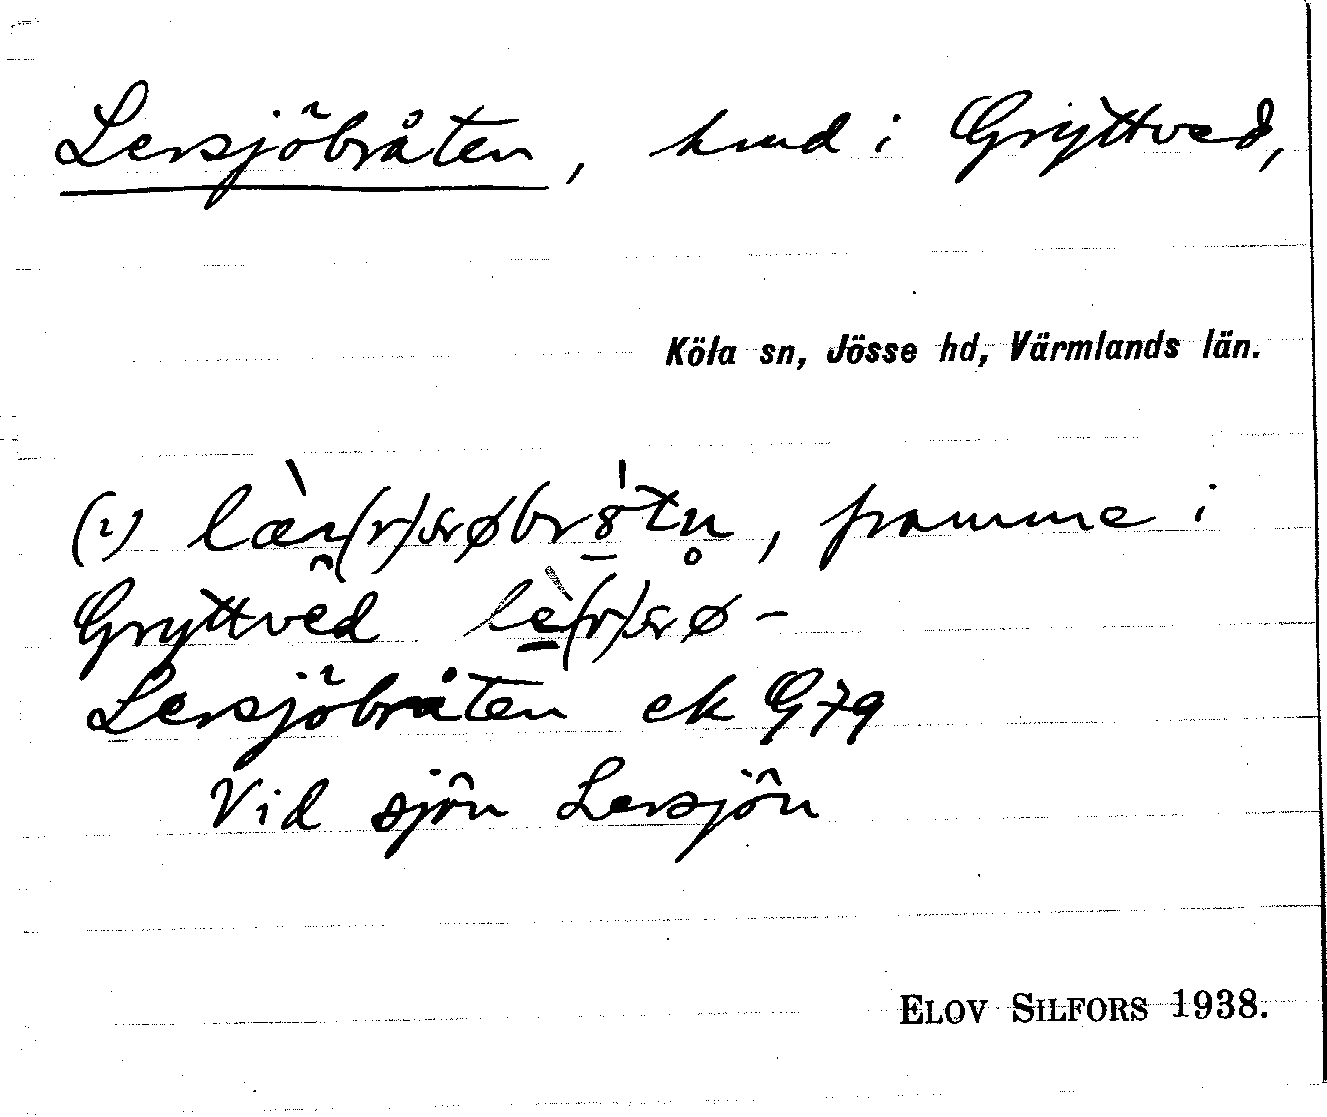 Lersjöbråten, hmd i Gryttved,
Köla sn, Jösse hd, Värmlands län.
framme i
Gryttved
Lersjöbråten ek G79
Vid sjön Lersjön
ELOV SILFORS 1938.